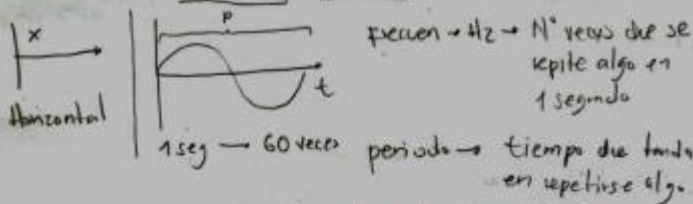 x
Horizontal
P
t
1 seg → 60 veces
frecuen → Hz → N° veces que se
repite algo en
1 segundo
periodo → tiempo que tarda
en repetirse algo.